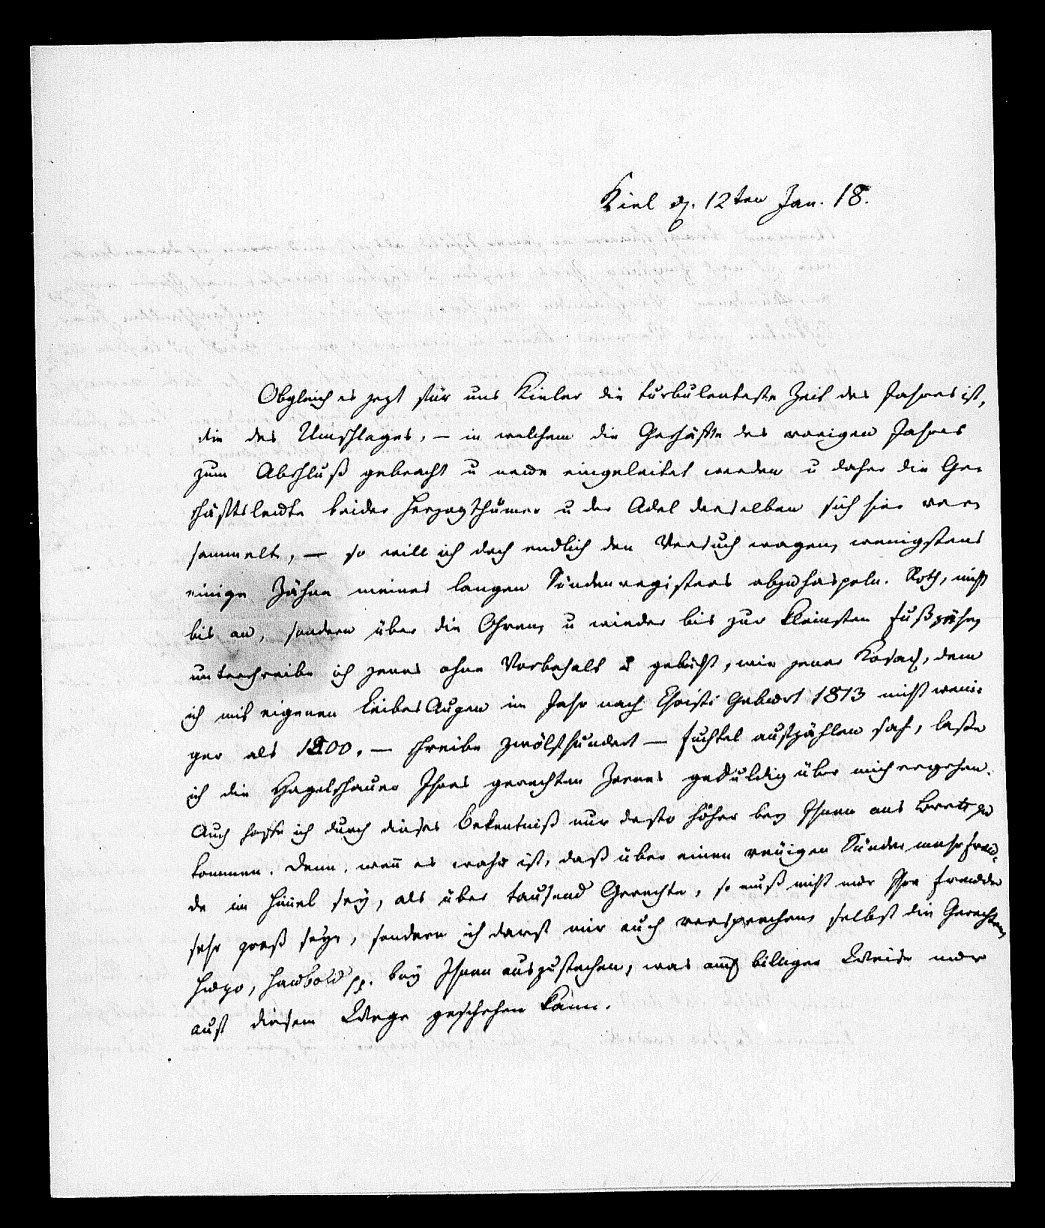 Kiel d. 12ten Jan. 18.
Obgleich es jezt für uns Kieler die turbulenteste Zeit des Jahres ist,
die des Umschlages, – in welchem die Geschäfte des vorigen Jahres
zum Abschluß gebracht u neue eingeleitet werden u daher die Ge-
schäftsleute beider Herzogthümer u der Adel derselben sich hier ver-
sammelt, – so will ich doch endlich den Versuch wagen, wenigstens
einige Zähne meines langen Sündenregisters abzuhaspeln. Roth, nicht
bis an, sondern über die Ohren, u wieder bis zur kleinsten Fußzehe,
unterschreibe ich jenes ohne Vorbehalt u gebückt, wie jener Kosack, dem
ich mit eigenen Leibes Augen im Jahr nach Christi Geburt 1813 nicht weni-
ger als 1200, – schreibe zwölfhundert – Fuchtel aufzählen sah, lasse
ich die Hagelschauer Ihres gerechten Zornes geduldig über mich ergehen.
Auch hoffe ich durch dieses Bekentniß nur desto höher bey Ihnen ans Brett zu
kommen. Denn, wenn es wahr ist, daß über einen reuigen Sünder mehr Freu-
de im Himel sey, als über tausend Gerechte, so muß nicht nur Ihre Freude
sehr groß seyn, sondern ich darf mir auch versprechen, selbst die Gerechten,
Hugo, Haubold pp. bey Ihnen auszustechen, was auf billige Weise nur
auf diesem Wege geschehen kann.